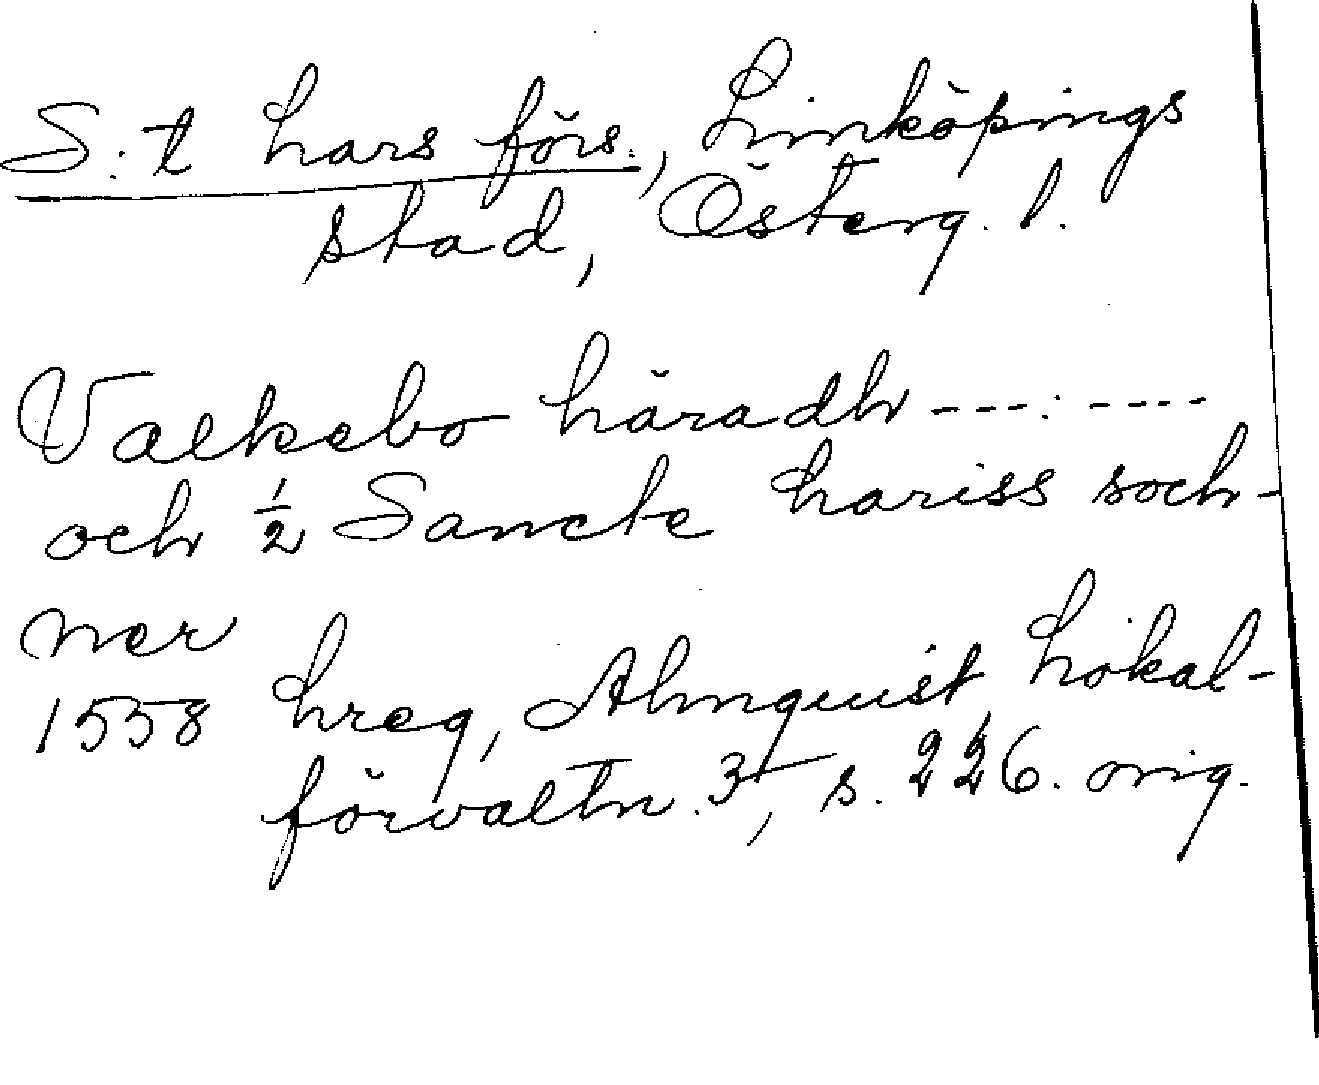 S:t Lars förs., Linköpings
stad, Österg. l.
Valkebo häradh ---:----
och ½ Sancte Lariss soch-
ner
1558 Lreg, Almquist, Lokal-
förvaltn. 3, s. 226. orig.